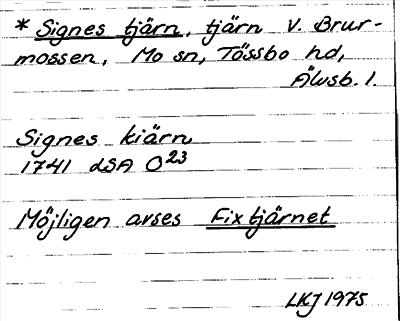 * Signes tjärn, tjärn v. Brur-
mossen, Mo sn, Tössbo hd,
Älvsb. l.
Signes kiärn
1741 LSA O23
Möjligen avses Fixtjärnet
LKJ 1975